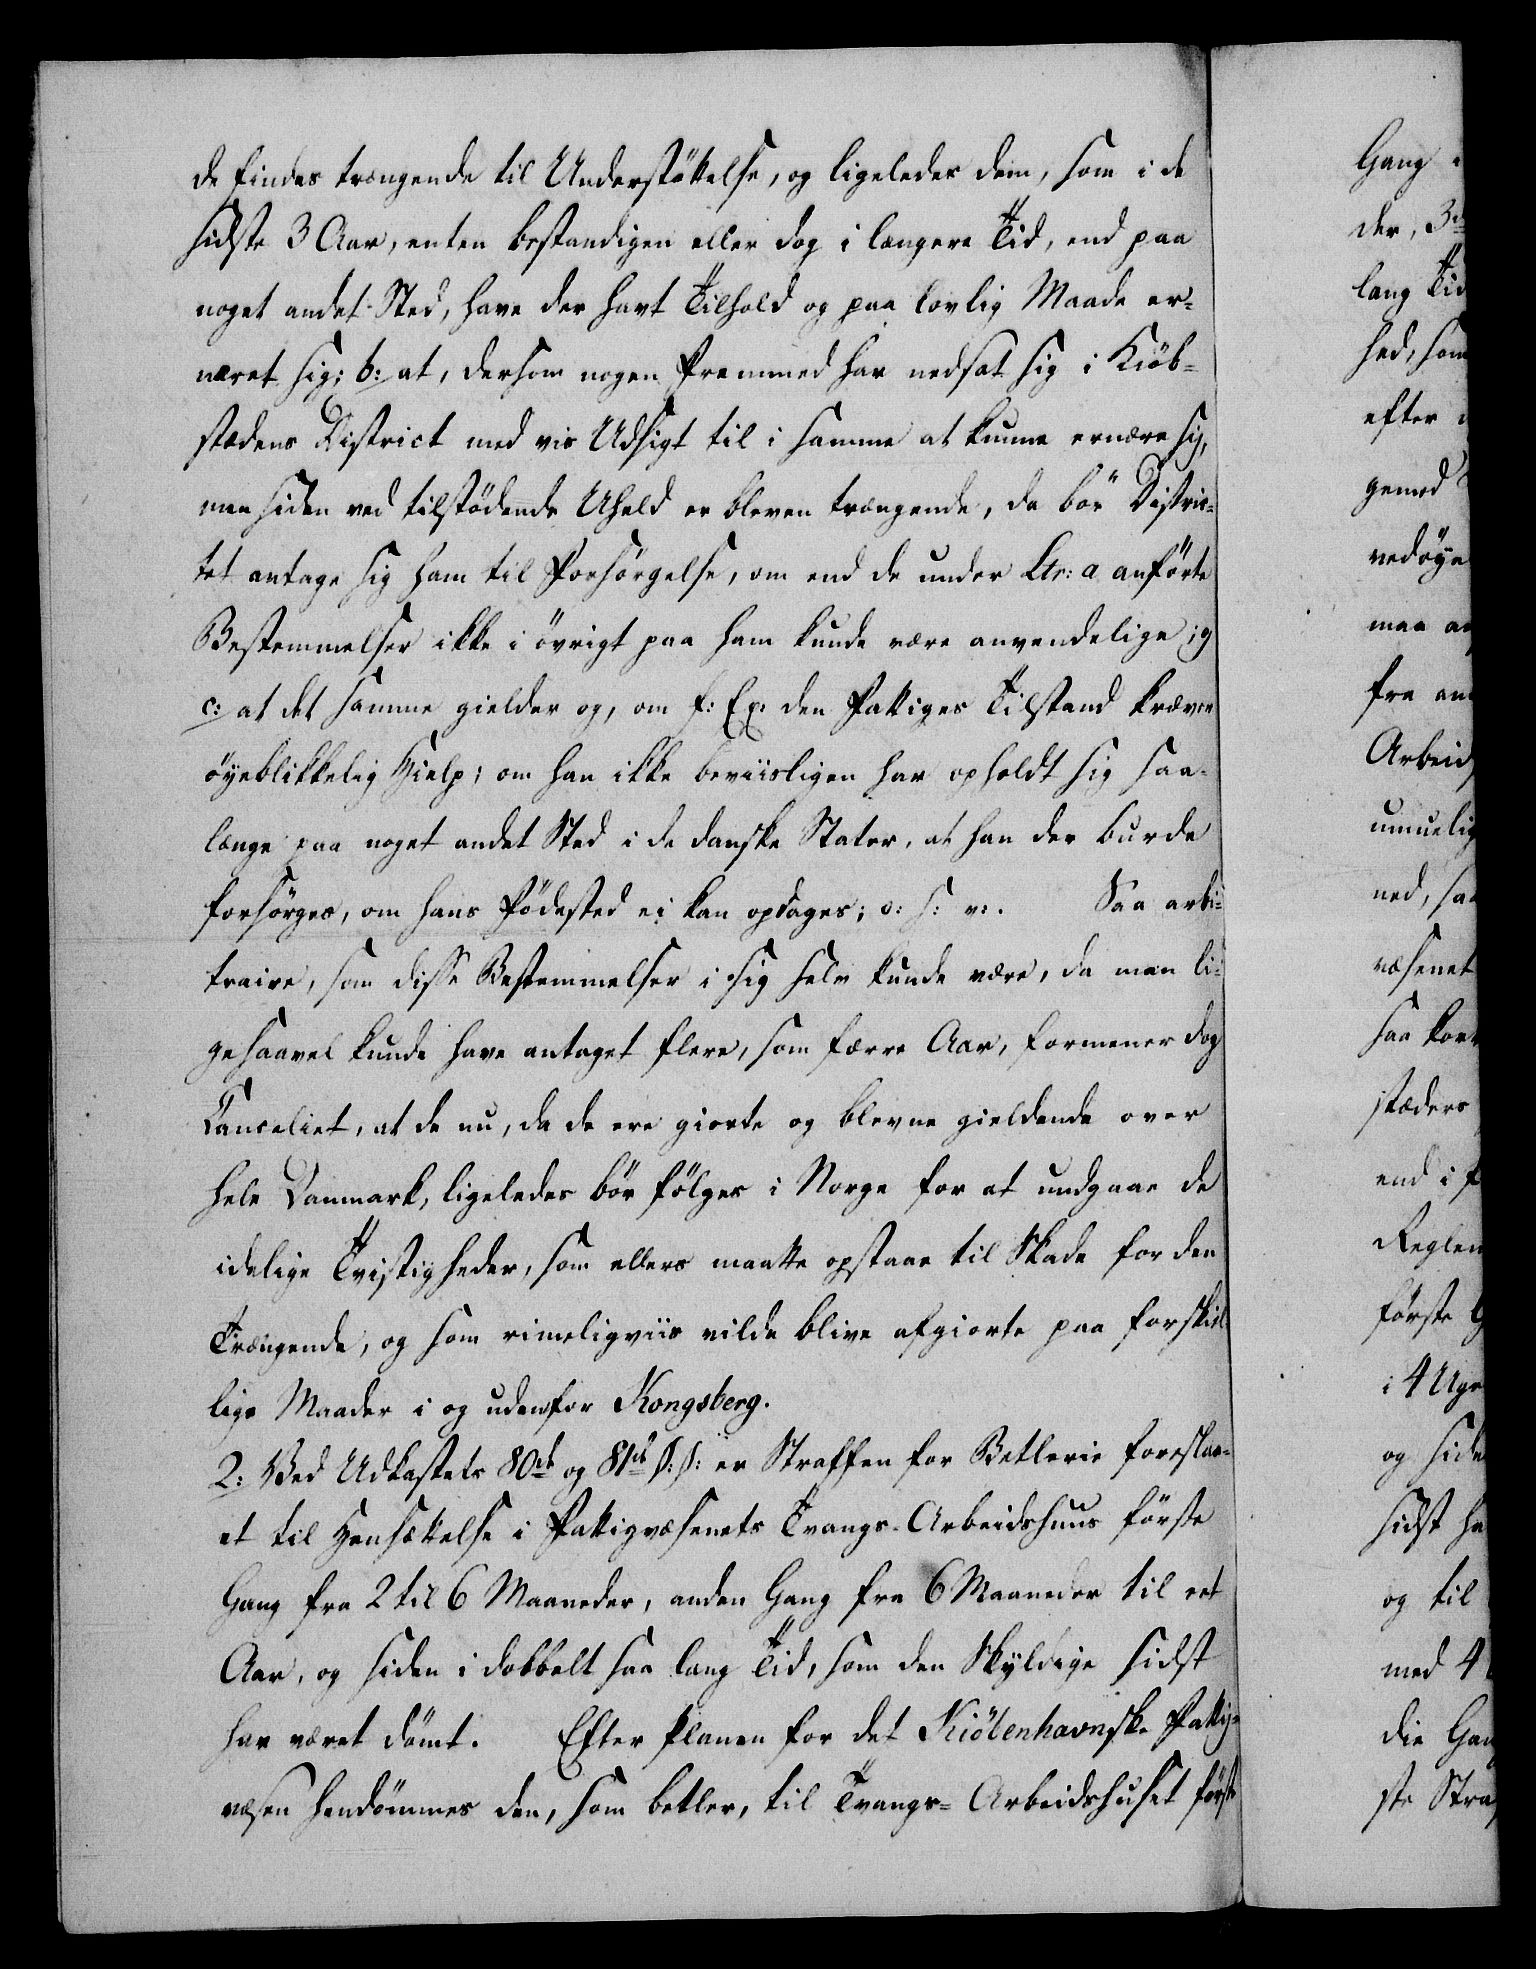 de findes trængende til Understöttelse, og ligeledes dem, som i de
sidste 3 Aar, enten bestandigen eller dog i længere Tid, end paa
noget andet Sted, have der havt Tilhold og paa lovlig Maade er=
næret sig; b: at, dersom nogen Fremmed har nedsat sig i Kiöb=
stædens District med vis Udsigt til i samme at kunne ernære sig,
men siden ved tilstödende Uheld er bleven trængende, da bör Distric=
tet antage sig ham til Forsörgelse, om end de under Litr: a anförte
Bestemmelser ikke i övrigt paa ham kunde være anvendelige; og
c: at det samme gielder og, om f: Ex: den Fattiges Tilstand kræver
öyeblikkelig Hielp; om han ikke beviisligen har opholdt sig saa-
længe paa noget andet Sted i de danske Stater, at han der burde
forsörges, om hans Födested ei kan opdages; o: s: v:. Saa arbi=
traire, som disse Bestemmelser i sig selv kunde være, da man li=
gesaavel kunde have antaget flere, som færre Aar, formener dog
Cancelliet, at de nu, da de ere giorte og blevne gieldende over
hele Danmark, ligeledes bör fölges i Norge for at undgaae de
idelige Tvistigheder, som ellers maatte opstaae til Skade for den
Trængende, og som rimeligviis vilde blive afgiorte paa forskiel
lige Maader i og udenfor Kongsberg.
2: Ved Udkastets 80de og 81de §: §: er Straffen for Betlerie foreslaa=
et til Hensættelse i Fattigvæsenets Tvangs-Arbeidshuus förste
Gang fra 2 til 6 Maaneder, anden Gang fra 6 Maaneder til eet
Aar, og siden i dobbelt saa lang Tid, som den Skyldige sidst
har været dömt. Efter Planen for det Kiöbenhavnske Fattig=
væsen hendömmes den, som betler, til Tvangs= Arbeidshuset förste
Gang
der, 3de
lang Tid
hed, som
efter
gened
vedöye
maa
fra
Arbeids
umuelig
ned, saa
væsenet
saa
stæders
end i
Reglem
förste
i 4 Uger
og siden
sidst
og til
med 4
die Gang
ste Straf